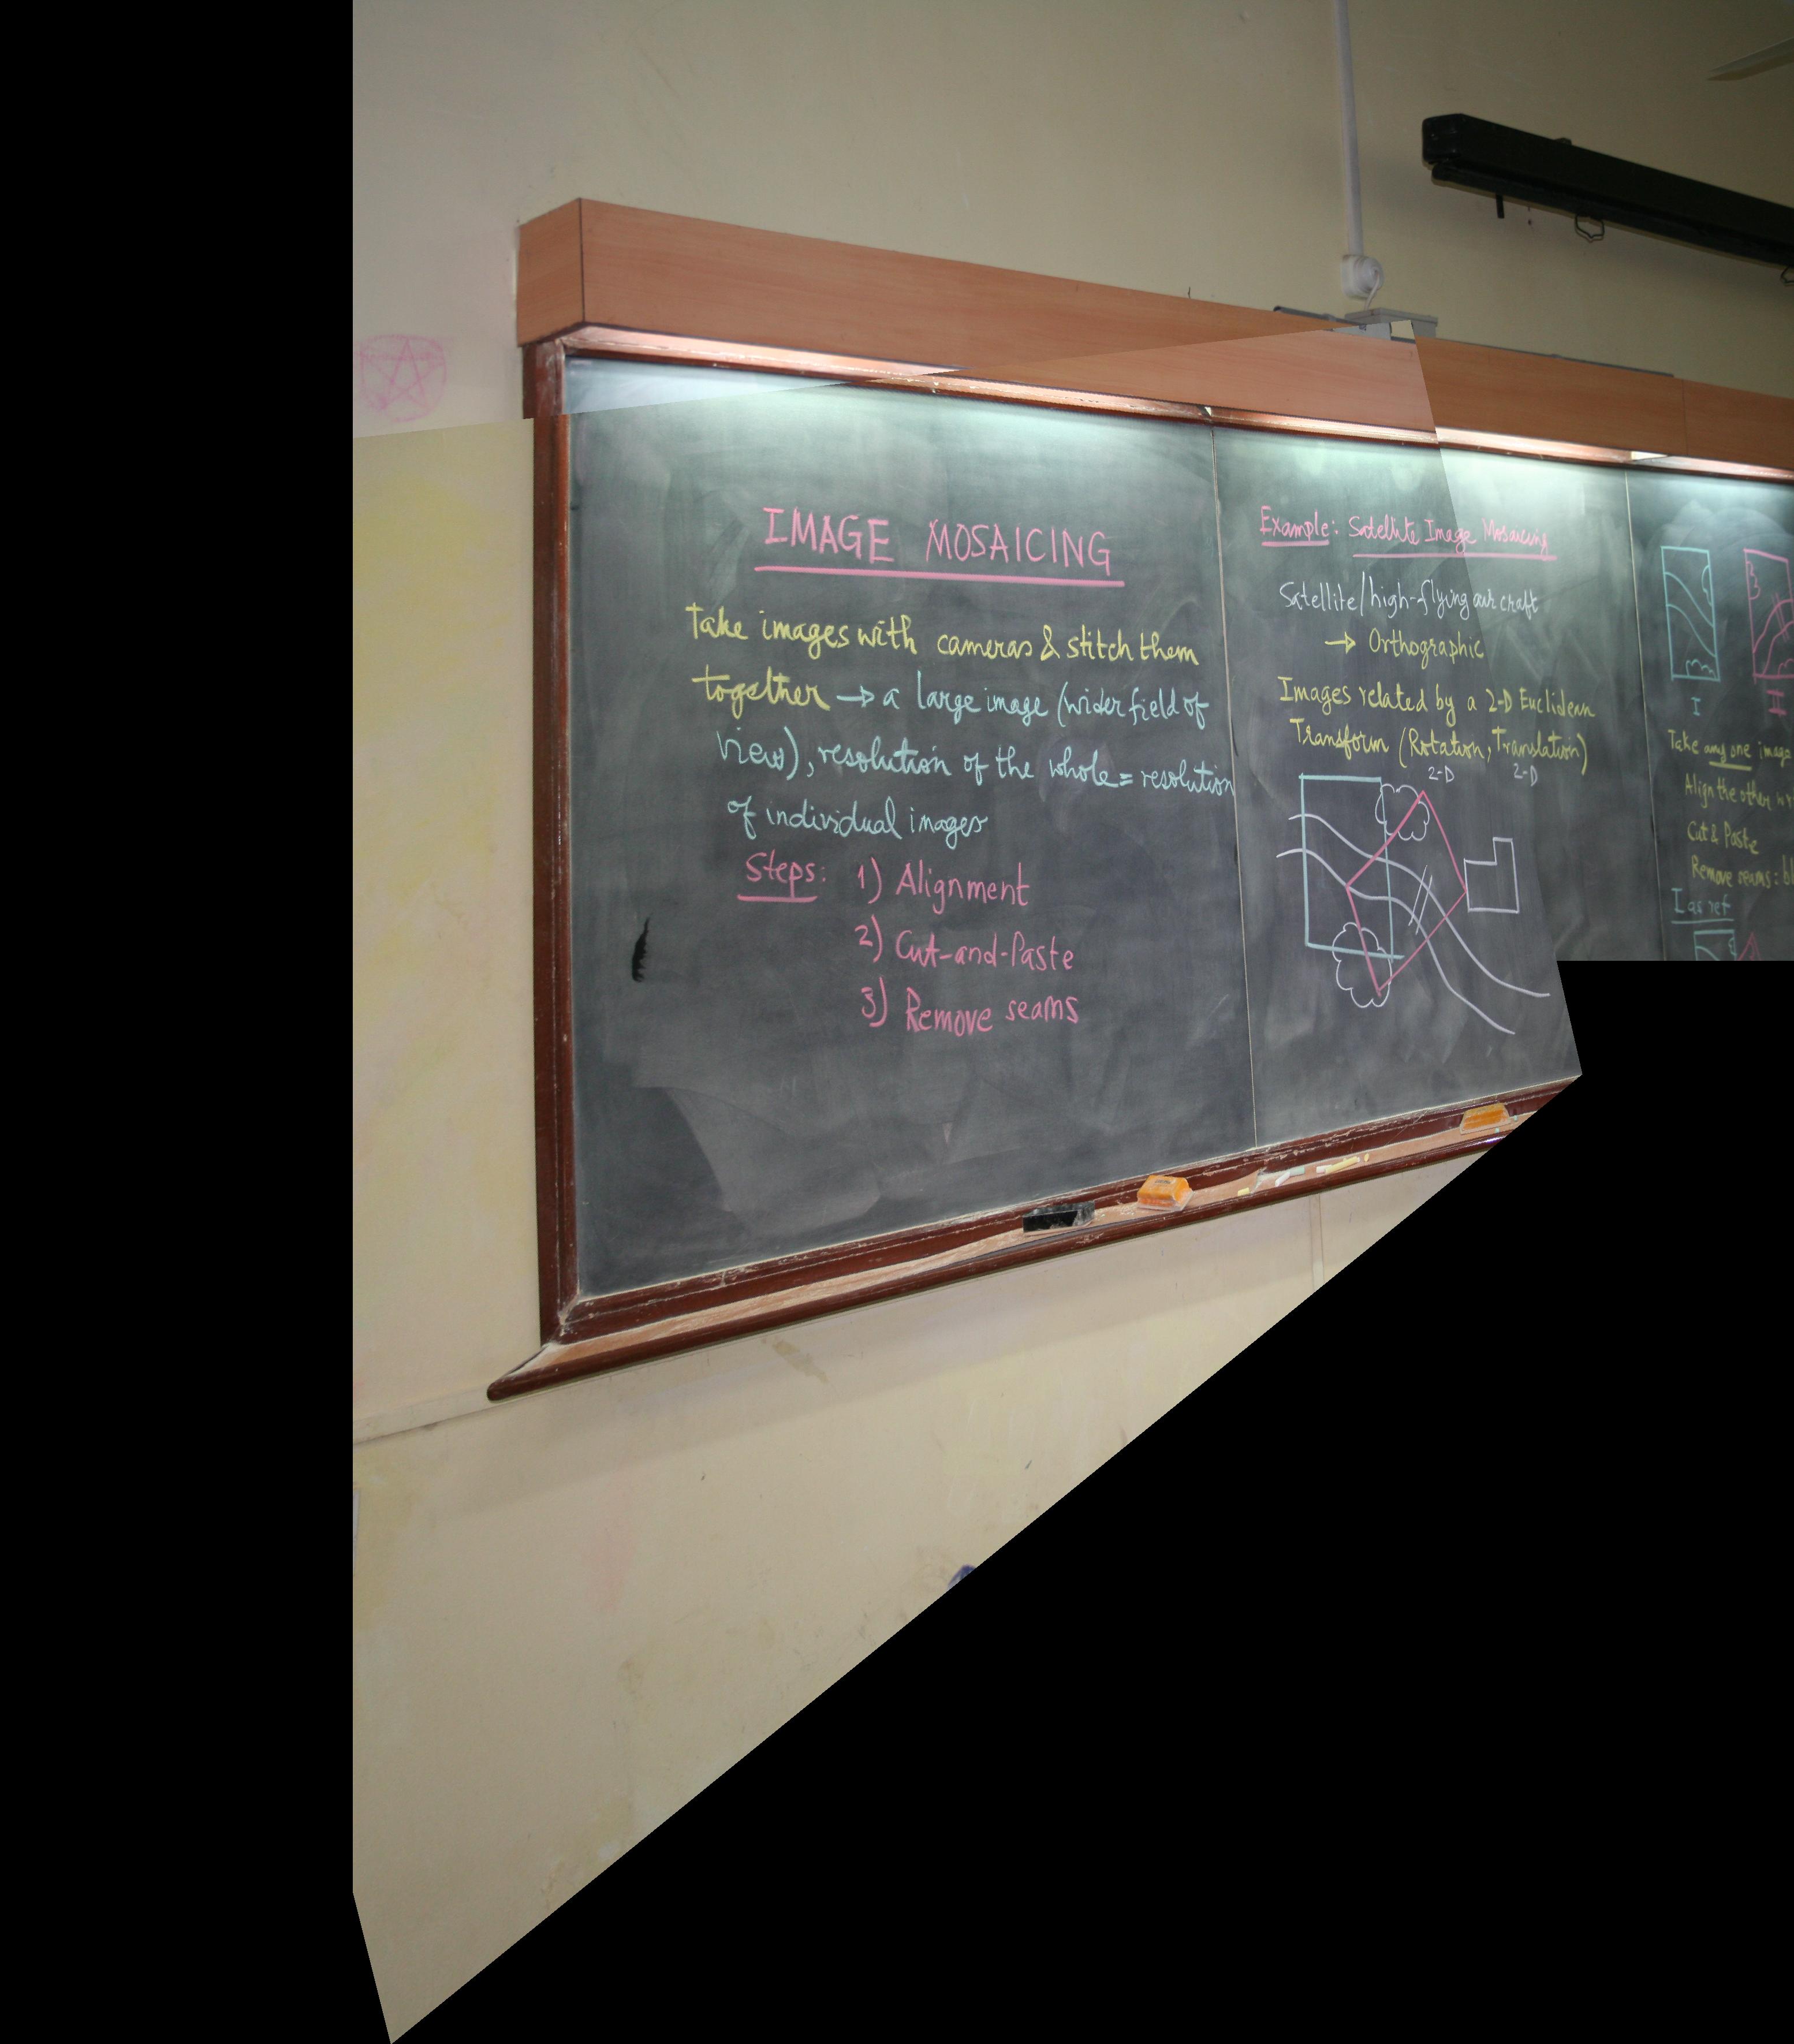 IMAGE MOSAICING
Take images with cameras & stitch them
together → a large image (wider field of
view), resolution of the whole = resolution
of individual images
Steps: 1) Alignment
2) Cut-and-Paste
3) Remove seams
Example: Satellite Image Mosaicing
Satellite/high-flying air craft
→ Orthographic
Images related by a 2-D Euclidean
Transform (Rotation, Translation)
2-D 2-D
I II
Take any one image
Align the other
Cut & Paste
Remove seams:
I as ref